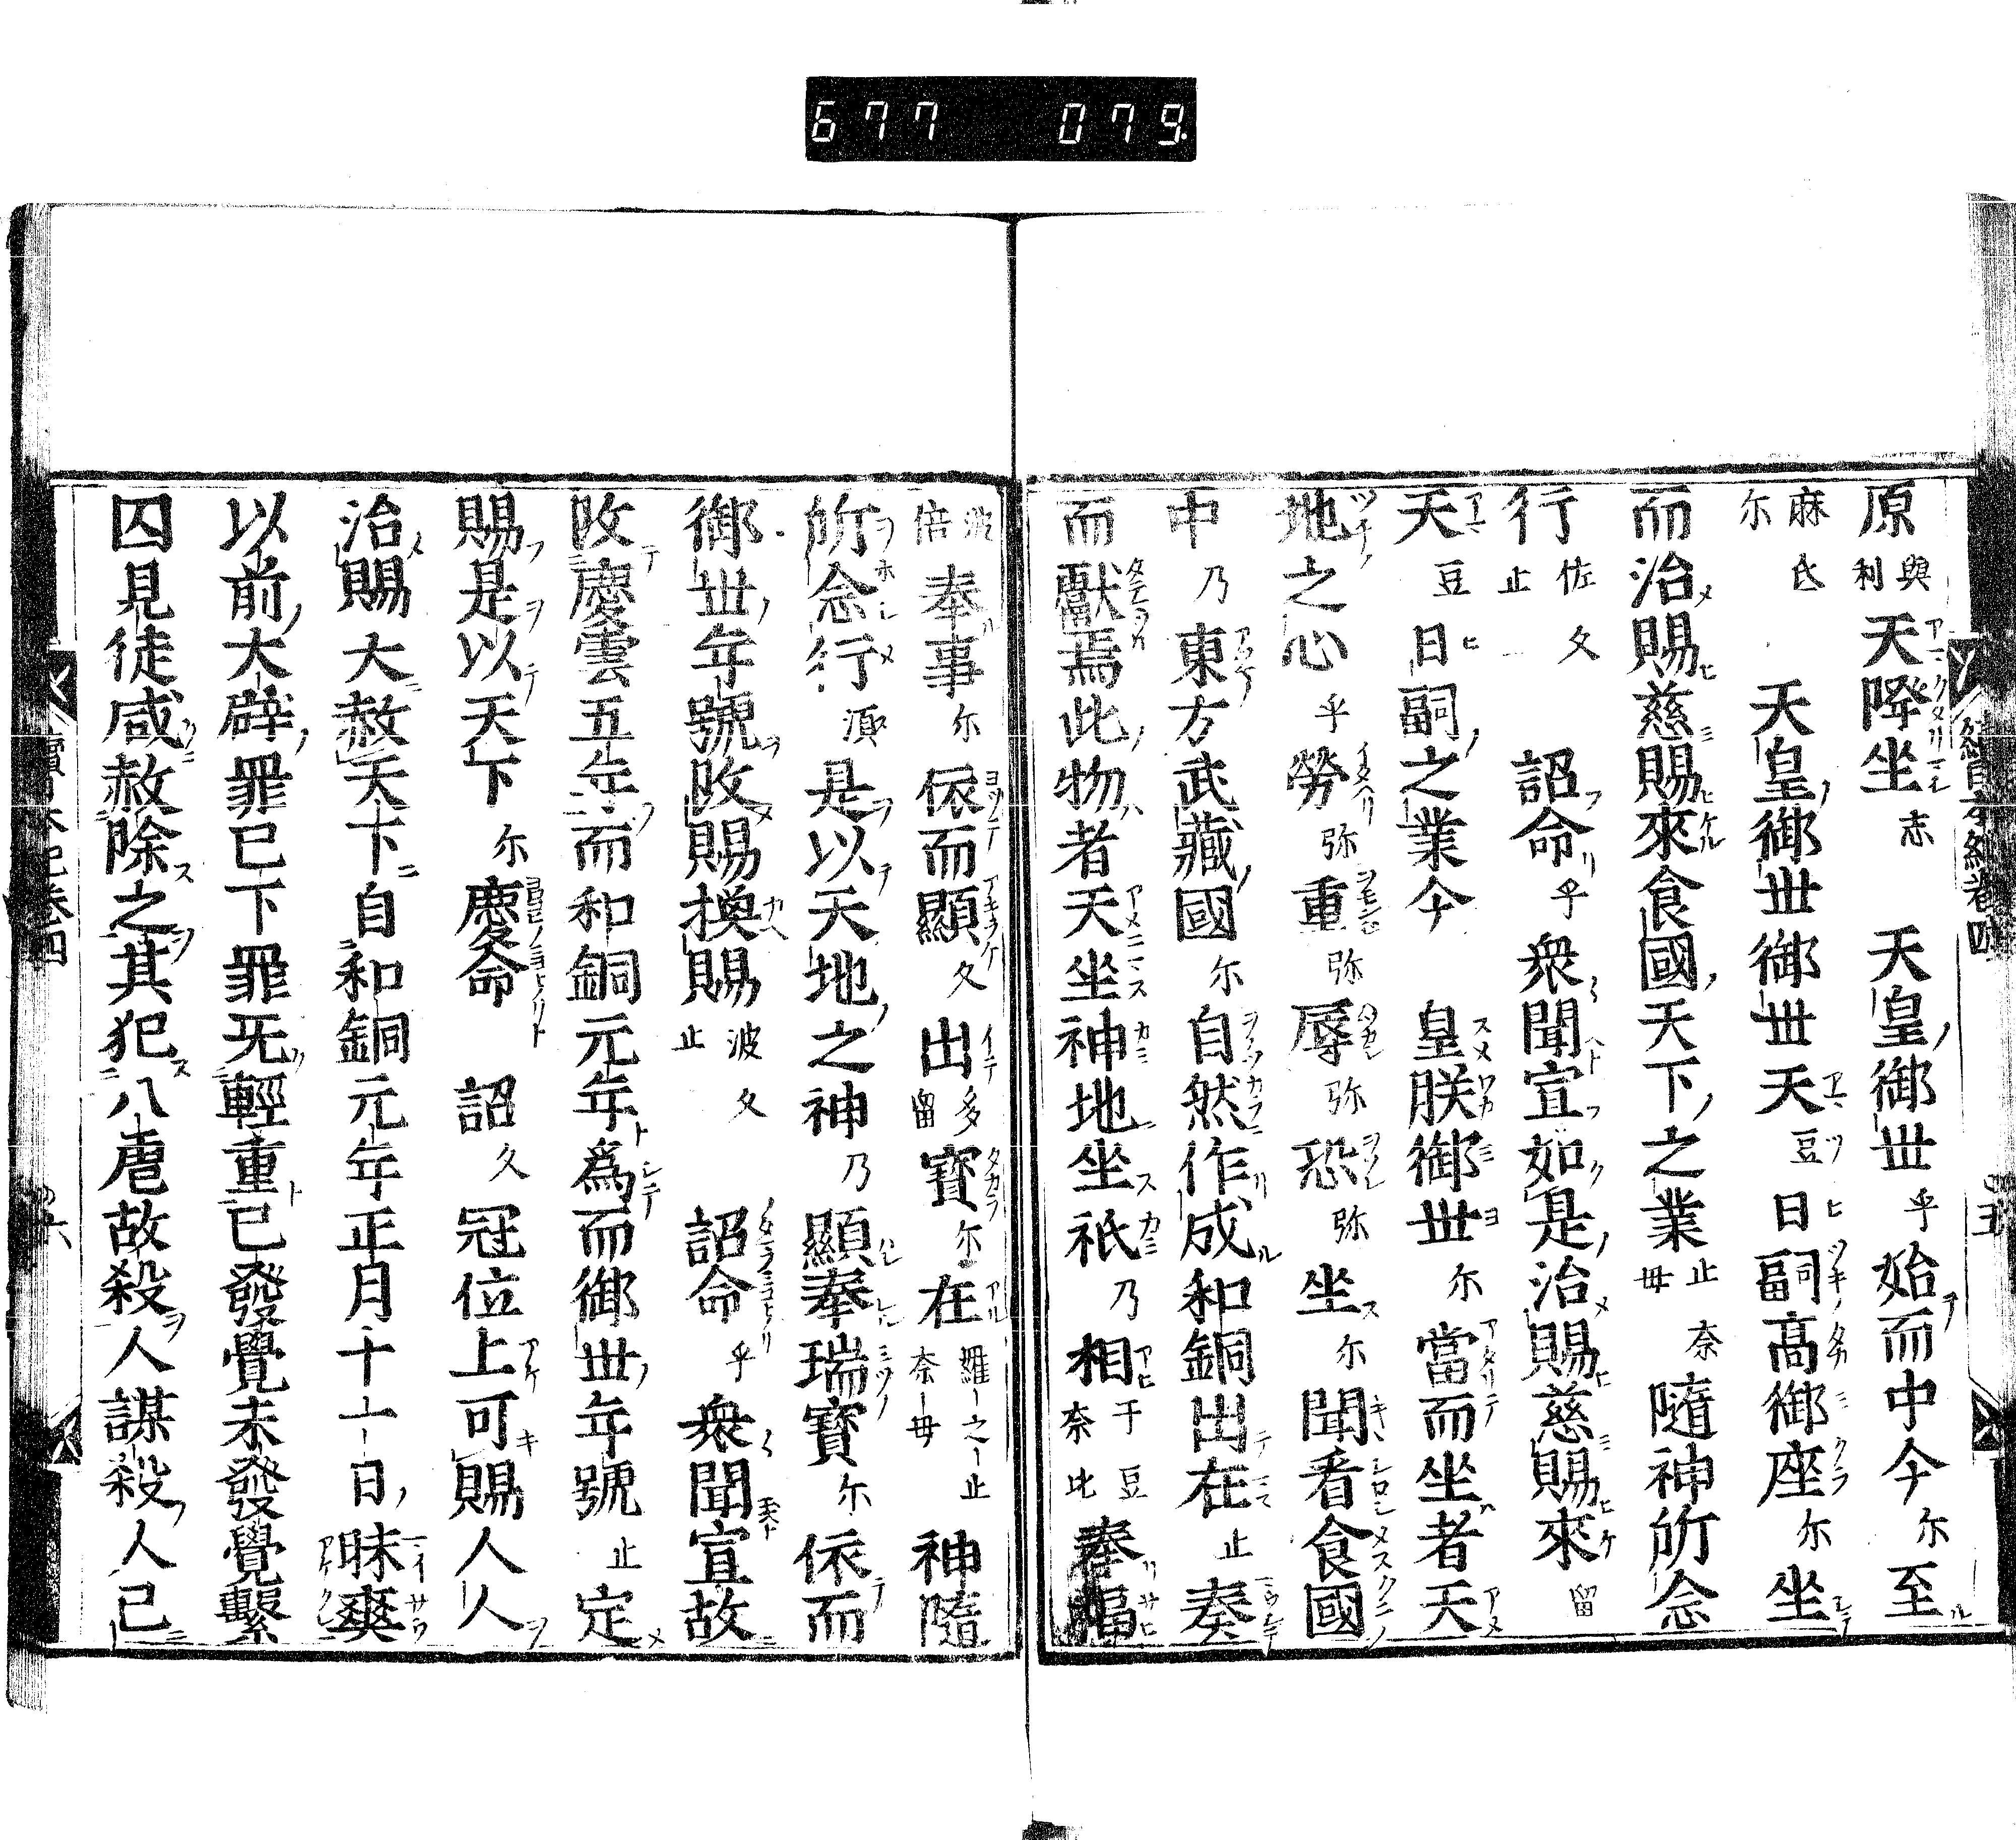 677 079.
續日本紀卷四 五
原與利天降坐志 天皇御世乎始而中今尓至
麻氐尓 天皇御世御世天豆日嗣高御座尓坐
而治賜慈賜來食國天下之業止奈毋隨神所念
行佐久止 詔命乎衆聞宣如是治賜慈賜來留
天豆日嗣之業今 皇朕御世尓當而坐者天
地之心乎勞弥重弥辱弥恐弥坐尓聞看食國
中乃東方武藏國尓自然作成和銅出在止奏
而獻焉此物者天坐神地坐祇乃相于豆奈比奉福
波倍奉事尓依而顯久出多留寶尓在羅之止奈毋神隨
所念行須是以天地之神乃顯奉瑞寶尓依而
御世年號改賜換賜波久止 詔命乎衆聞宣故
改慶雲五年而和銅元年爲而御世年號止定
賜是以天下尓慶命 詔久冠位上可賜人人
治賜大赦天下自和銅元年正月十一日昧爽
以前大辟罪已下罪无輕重已發覺未發覺繋
囚見徒咸赦除之其犯八虐故殺人謀殺人已
續日本紀卷四 六